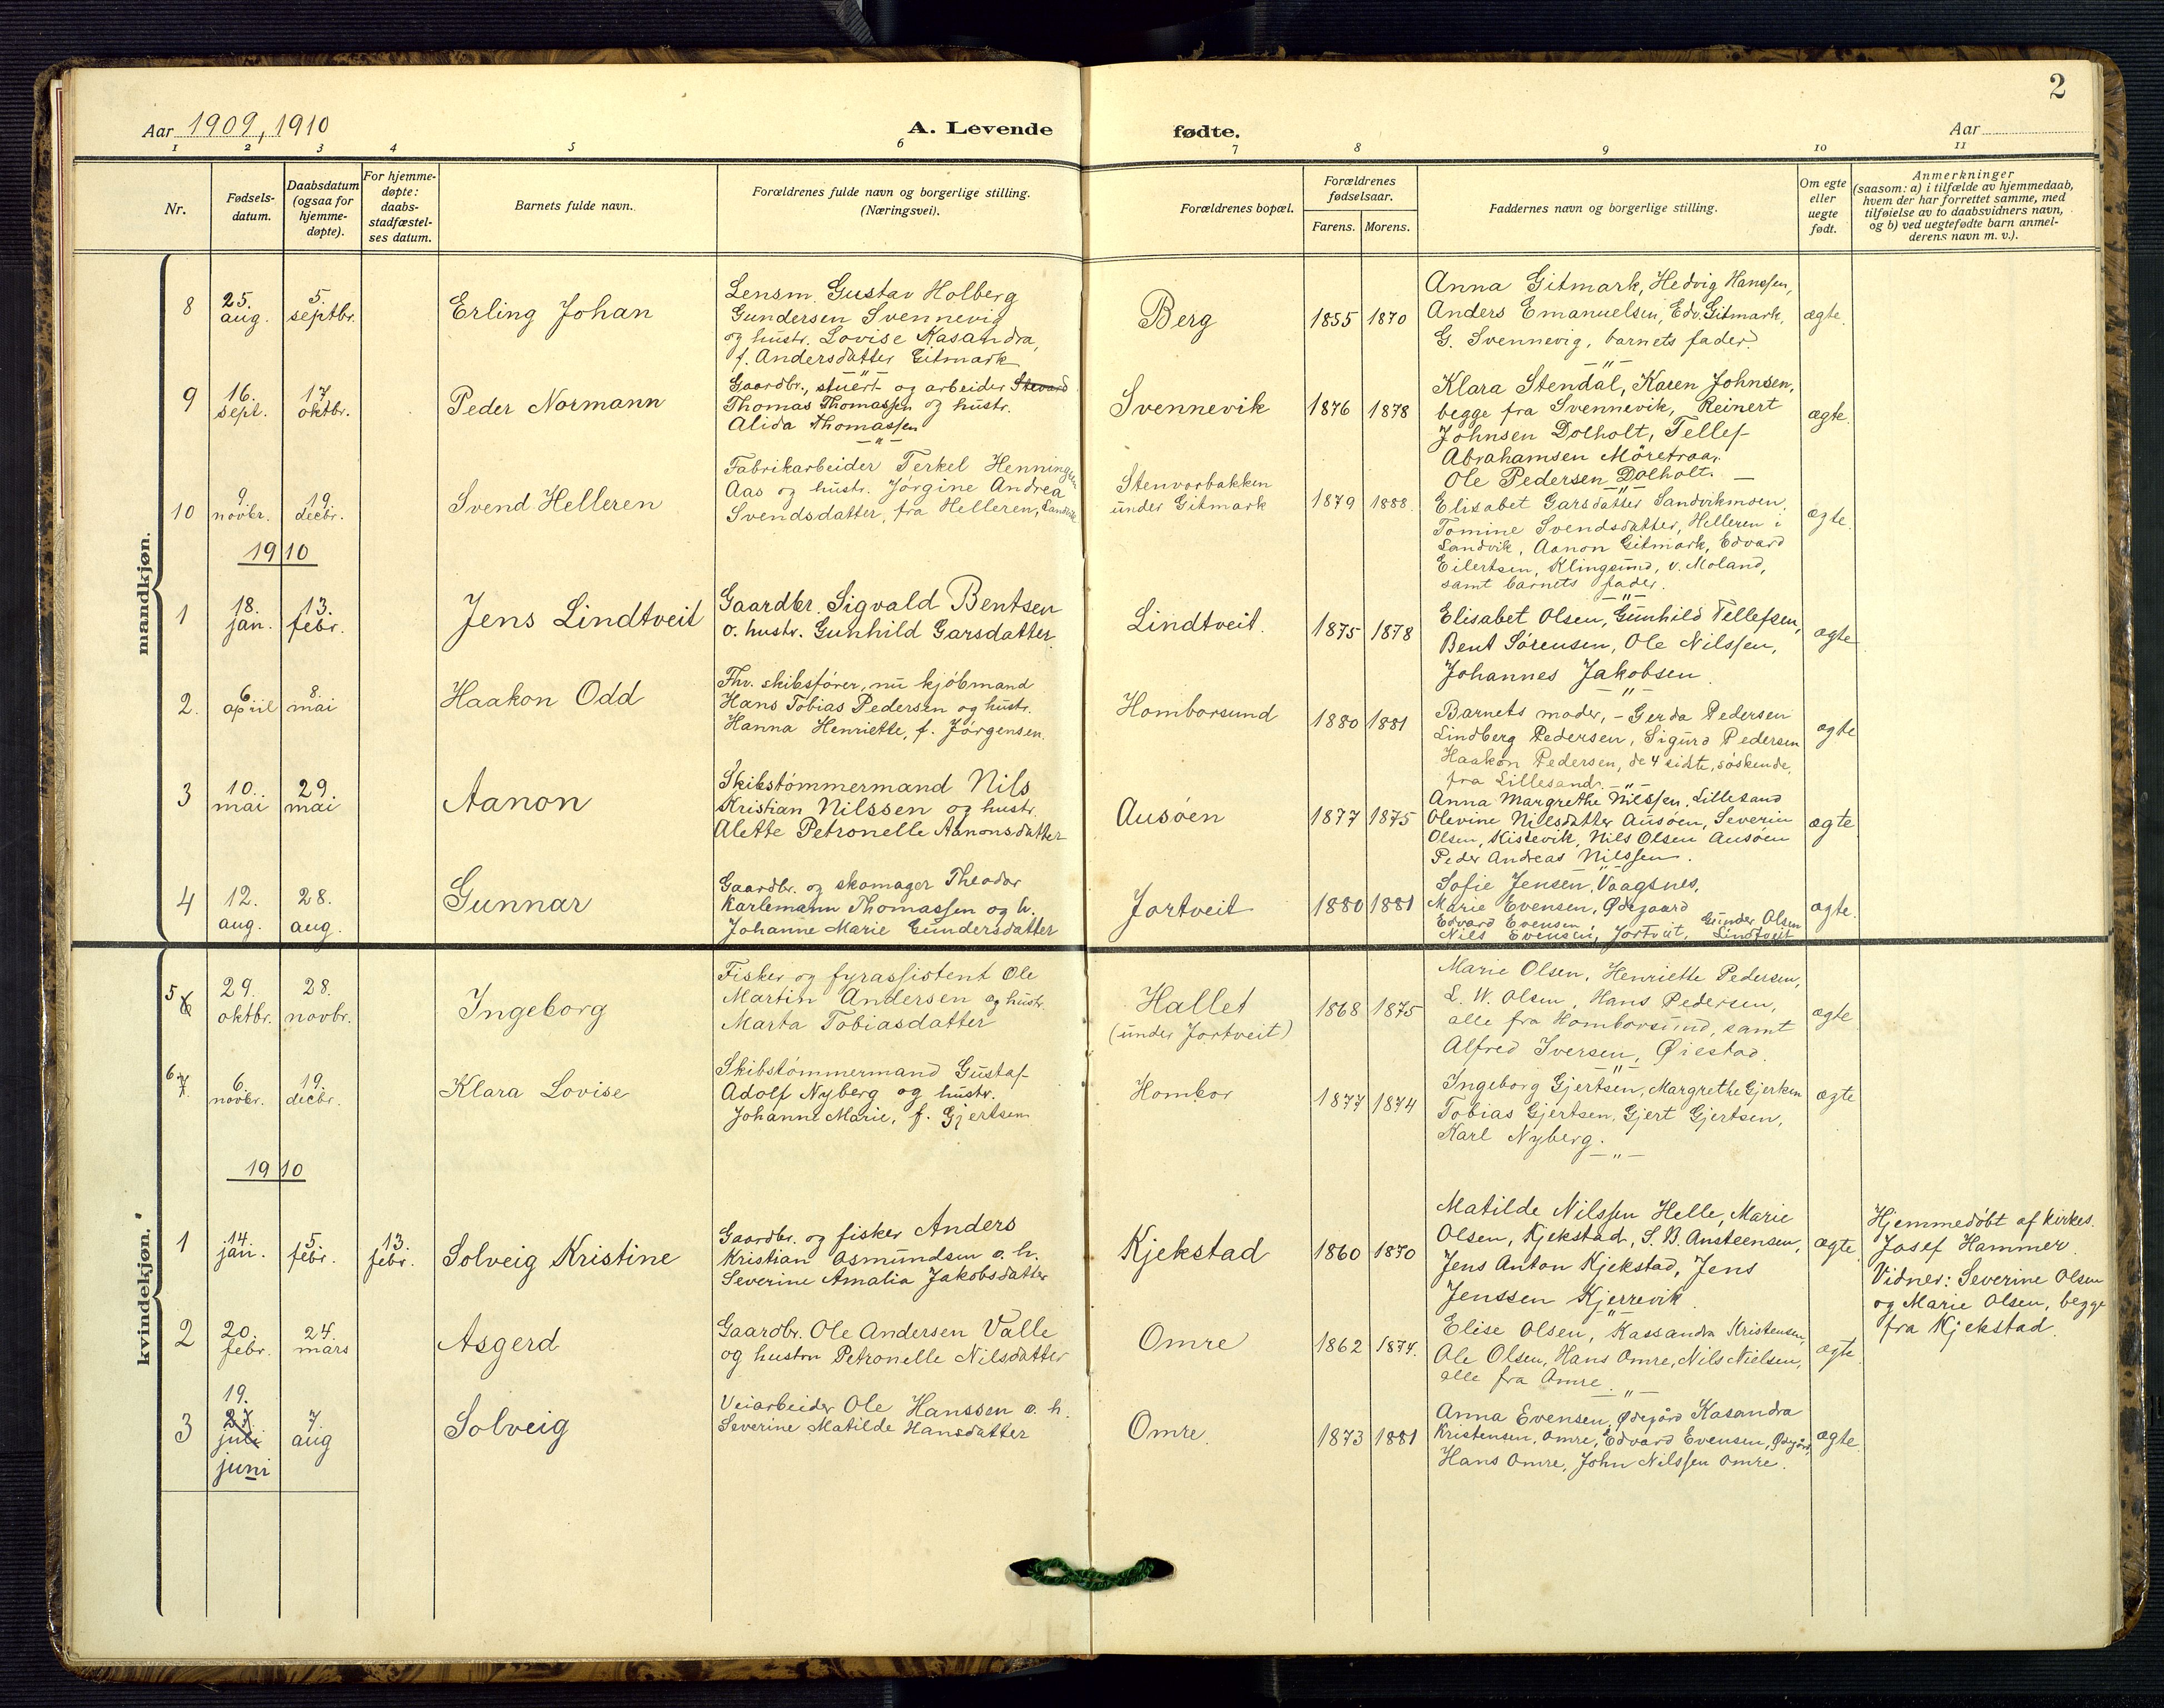 2
Aar 1909, 1910
A. Levende
fødte.
Aar
1 2 3 4 5 6 7 8 9 10 11
Nr.
Fødsels-
datum.
Daabsdatum
(ogsaa for
hjemme-
døpte).
For hjemme-
døpte:
daabs-
stadfæstel-
ses datum.
Barnets fulde navn.
Forældrenes fulde navn og borgerlige stilling.
(Næringsvei).
Forældrenes bopæl.
Forældrenes
fødselsaar.
Farens. Morens.
Faddernes navn og borgerlige stilling.
Om egte
eller
uegte
født.
Anmerkninger
(saasom: a) i tilfælde av hjemmedaab,
hvem der har forrettet samme, med
tilføielse av to daabsvidners navn,
og b) ved uegtefødte barn anmel-
derens navn m. v.).
mandkjøn.
8
25.
aug.
5.
septbr.
Erling Johan
Lensm. Gustav Holberg
Gundersen Svennevig
og hustr. Lovise Kasandra,
f. Andersdatter Gitmark
Berg
1855 1870
Anna Gitmark, Hedvig Hanssen,
Anders Emanuelsen, Edv. Gitmark,
G. Svennevig, barnets fader.
ægte.
9
16.
sept.
17.
oktbr.
Peder Normann
Gaardbr., stuert og arbeider Steward
Thomas Thomassen og hustr.
Alida Thomassen
Svennevik
1876 1878
Klara Stendal, Karen Johnsen,
begge fra Svennevik, Reinert
Johnsen Dolholt, Tellef
Abrahamsen Möretraa,
Ole Pedersen Dolholt.
ægte.
10
9.
novbr.
19.
decbr.
Svend Helleren
Fabrikarbeider Terkel Henningsen
Aas og hustr. Jørgine Andrea
Svendsdatter, fra Helleren, Sandvik
Stenvorbakken
under Gitmark
1879 1888.
Elisabet Garsdatter Sandvikmoen,
Tomine Svendsdatter, Helleren i
Sandvik, Aanon Gitmark, Edvard
Eilertsen, Klingsund, v. Moland,
samt barnets fader.
ægte.
1910
1
18.
jan.
13.
febr.
Jens Lindtveit
Gaardbr. Sigvald Bentsen
o. hustr. Gunhild Garsdatter.
Lindtveit.
1875 1878
Elisabet Olsen, Gunhild Tellefsen,
Bent Sørensen, Ole Nilssen,
Johannes Jakobsen.
ægte
2.
6.
april
8.
mai
Haakon Odd
Fhv. skibsfører, nu kjøbmand
Hans Tobias Pedersen og hustr.
Hanna Henriette, f. Jørgensen.
Homborsund
1880 1881
Barnets moder, - Gerda Pedersen
Lindberg Pedersen, Sigurd Pedersen
Haakon Pedersen, de 4 sidste, söskende,
fra Lillesand.
ægte
3
10.
mai
29.
mai
Aanon
Skibstømmermand Nils
Kristian Nilssen og hustr.
Alette Petronelle Aanonsdatter
Ausøen
1877 1875
Anna Margrethe Nilssen, Lillesand
Olevine Nilsdatter Ausøen, Severin
Olsen, Kistevik, Nils Olsen Ausøen
Peder Andreas Nilssen.
ægte
4
12.
aug.
28.
aug.
Gunnar
Gaardbr. og skomager Theodor
Karlemann Thomassen og h.
Johanne Marie Gundersdatter
Jortveit
1880 1881
Sofie Jensen, Vaagsnes,
Marie Evensen, Ødegaard
Edvard Evensen Gunder Olsen
Nils Evensen, Jortveit, Lindtveit
ægte.
kvindekjøn.
5 6
29.
oktbr.
28.
novbr.
Ingeborg
Fisker og fyrassistent Ole
Martin Andersen og hustr.
Marta Tobiasdatter
Hallet
(under Jortveit)
1868 1875
Marie Olsen, Henriette Pedersen,
L. W. Olsen, Hans Pedersen,
alle fra Homborsund, samt
Alfred Iversen, Øiestad.
ægte
6. 7.
6.
novbr.
19.
decbr.
Klara Lovise
Skibstømmermand Gustaf
Adolf Nyberg og hustr.
Johanne Marie, f. Gjertsen
Hombor
1877 1874
Ingeborg Gjertsen, Margrethe Gjertsen
Tobias Gjertsen, Gjert Gjertsen,
Karl Nyberg.
ægte
1910
1
14.
jan.
5.
febr.
13.
febr.
Solveig Kristine
Gaardbr. og fisker Anders
Kristian Osmundsen o. h.
Severine Amalia Jakobsdatter
Kjekstad
1860 1870
Matilde Nilssen Helle, Marie
Olsen, Kjekstad, S. B. Ansteensen,
Jens Anton Kjekstad, Jens
Jenssen Kjerrevik.
ægte.
Hjemmedøbt af kirkes.
Josef Hammer.
Vidner: Severine Olsen
og Marie Olsen, begge
fra Kjekstad.
2
20.
febr.
24.
mars
Asgerd
Gaardbr. Ole Andersen Valle
og hustru Petronelle Nilsdatter
Omre
1862 1874.
Elise Olsen, Kassandra Kristensen,
Ole Olsen, Hans Omre, Nils Nielsen,
alle fra Omre.
ægte.
3
19.
27.
juli
juni
7.
aug
Solveig
Veiarbeider Ole Hanssen o. h.
Severine Matilde Hansdatter
Omre.
1873 1881
Anna Evensen, Ødegård Kasandra
Kristensen, Omre, Edvard Evensen, Ødegård,
Hans Omre, John Nilssen Omre.
ægte.